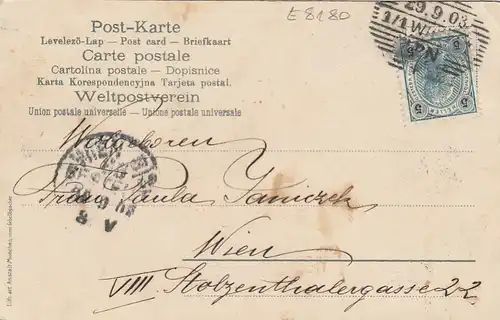 E 8180
Post-Karte
Levelező-Lap — Post card — Briefkaart
Carte postale
Cartolina postale — Dopisnice
Karta Korespondencyjna Tarjeta postal.
Weltpostverein
Union postale universelle — Unione postale universale
29.9.03
1/1 Wien
2N
5 5
Wolgeboren
Frau Paula Janiczek
Wien
VIII Stolzenthalergasse 22